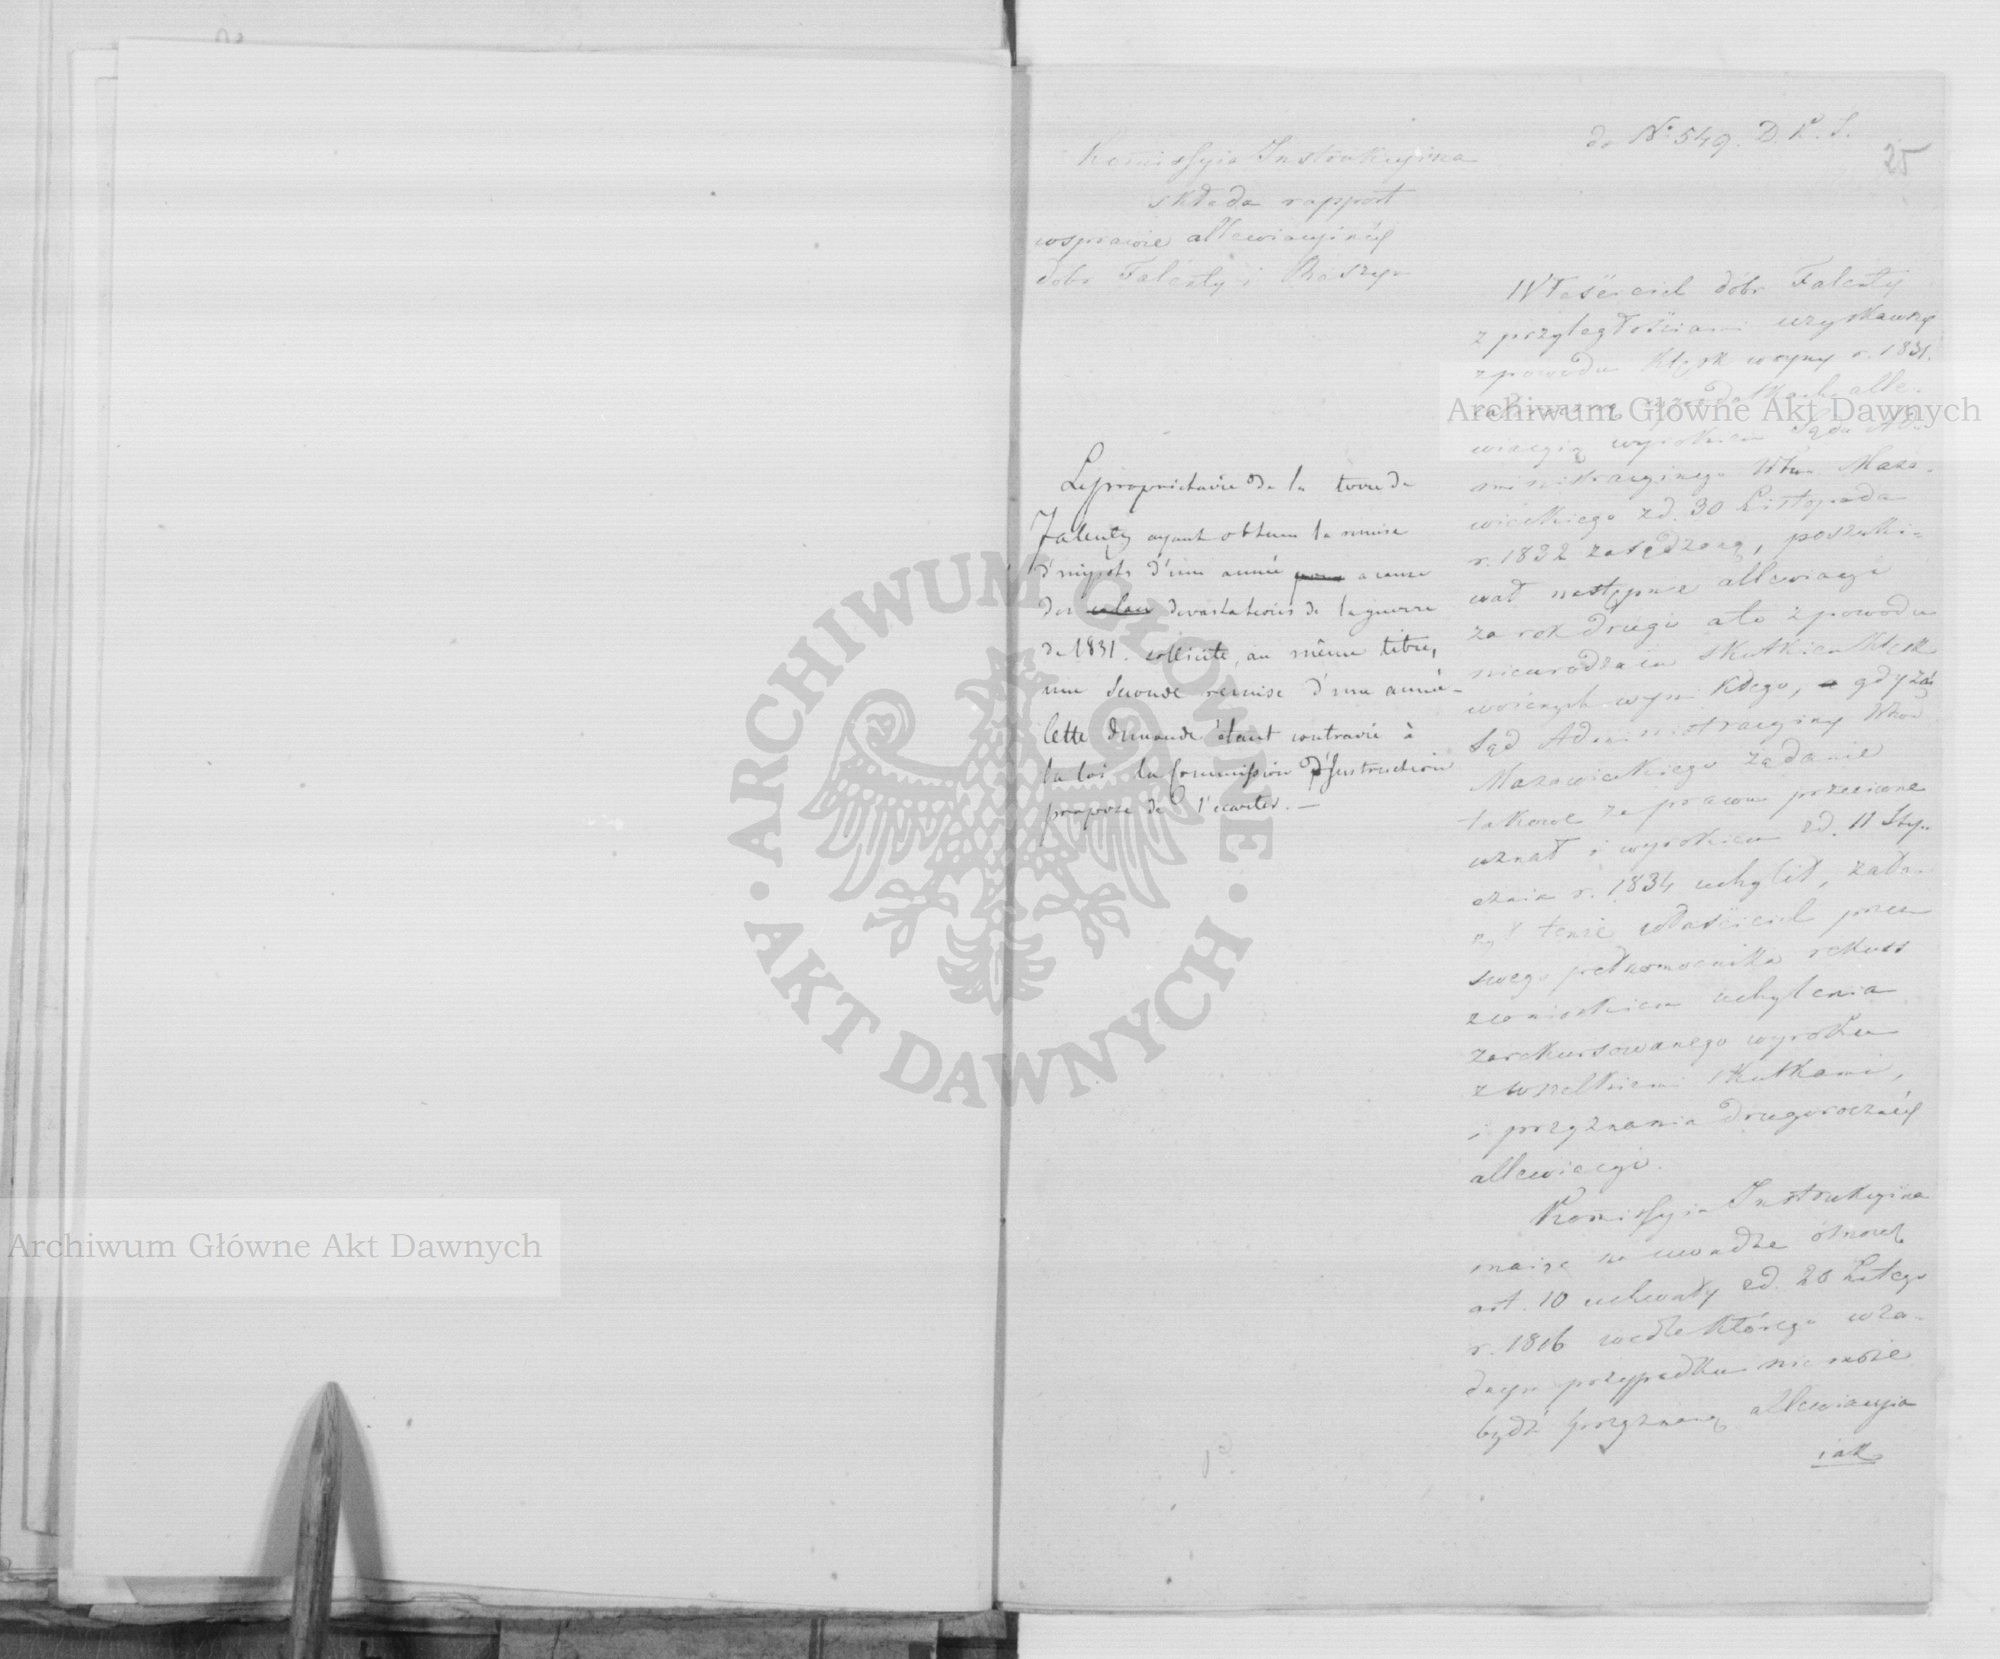 do No 549. D. K. I.
25
Komissyia Instrukcyina
składa rapport
wsprawie allewiacyinéy
dóbr Falenty i Raszyn
Le propriétaire de la terre de
Falenty ayant obtenu la remise
d'impots d'une année a cause
des devastations de la guerre
de 1831. sollicite, au même titre,
une seconde remise d'une année.
Cette demande étant contraire à
la loi la Commission d'Instruction
propose de l'ecarter. —
Właściciel dóbr Falenty
z przyległościami uzyskawszy
z powodu klęsk woyny r. 1831.
alle-
wiacyią wyrokiem Sądu Ad-
ministracyinego Wtwa Mazo-
wieckiego z d. 30 Listopada
r. 1832 zasądzoną, poszuki-
wał następnie allewiacyi
za rok drugi a to z powodu
nieurodzaiu skutkiem klęsk
woiennych wynikłego, gdy zaś
Sąd Administracyiny Wtwa
Mazowieckiego żądanie
takowe za prawu przeciwne
uznał i wyrokiem z d. 11 Sty-
cznia r. 1834 uchylił, zało-
żył tenże właściciel przez
swego pełnomocnika rekurs
z wnioskiem uchylenia
zarekursowanego wyroku
z wszelkiemi skutkami,
i przyznania drugorocznéy
allewiacyi.
Komissyia Instrukcyina
maiąc na uwadze osnowę
art. 10 uchwały z d. 20 Lutego
r. 1816 wedle którego w ża-
dnym przypadku nie może
bydź przyznaną allewiacyia
iak
Archiwum Główne Akt Dawnych
Archiwum Główne Akt Dawnych
ARCHIWUM GŁÓWNE
AKT DAWNYCH